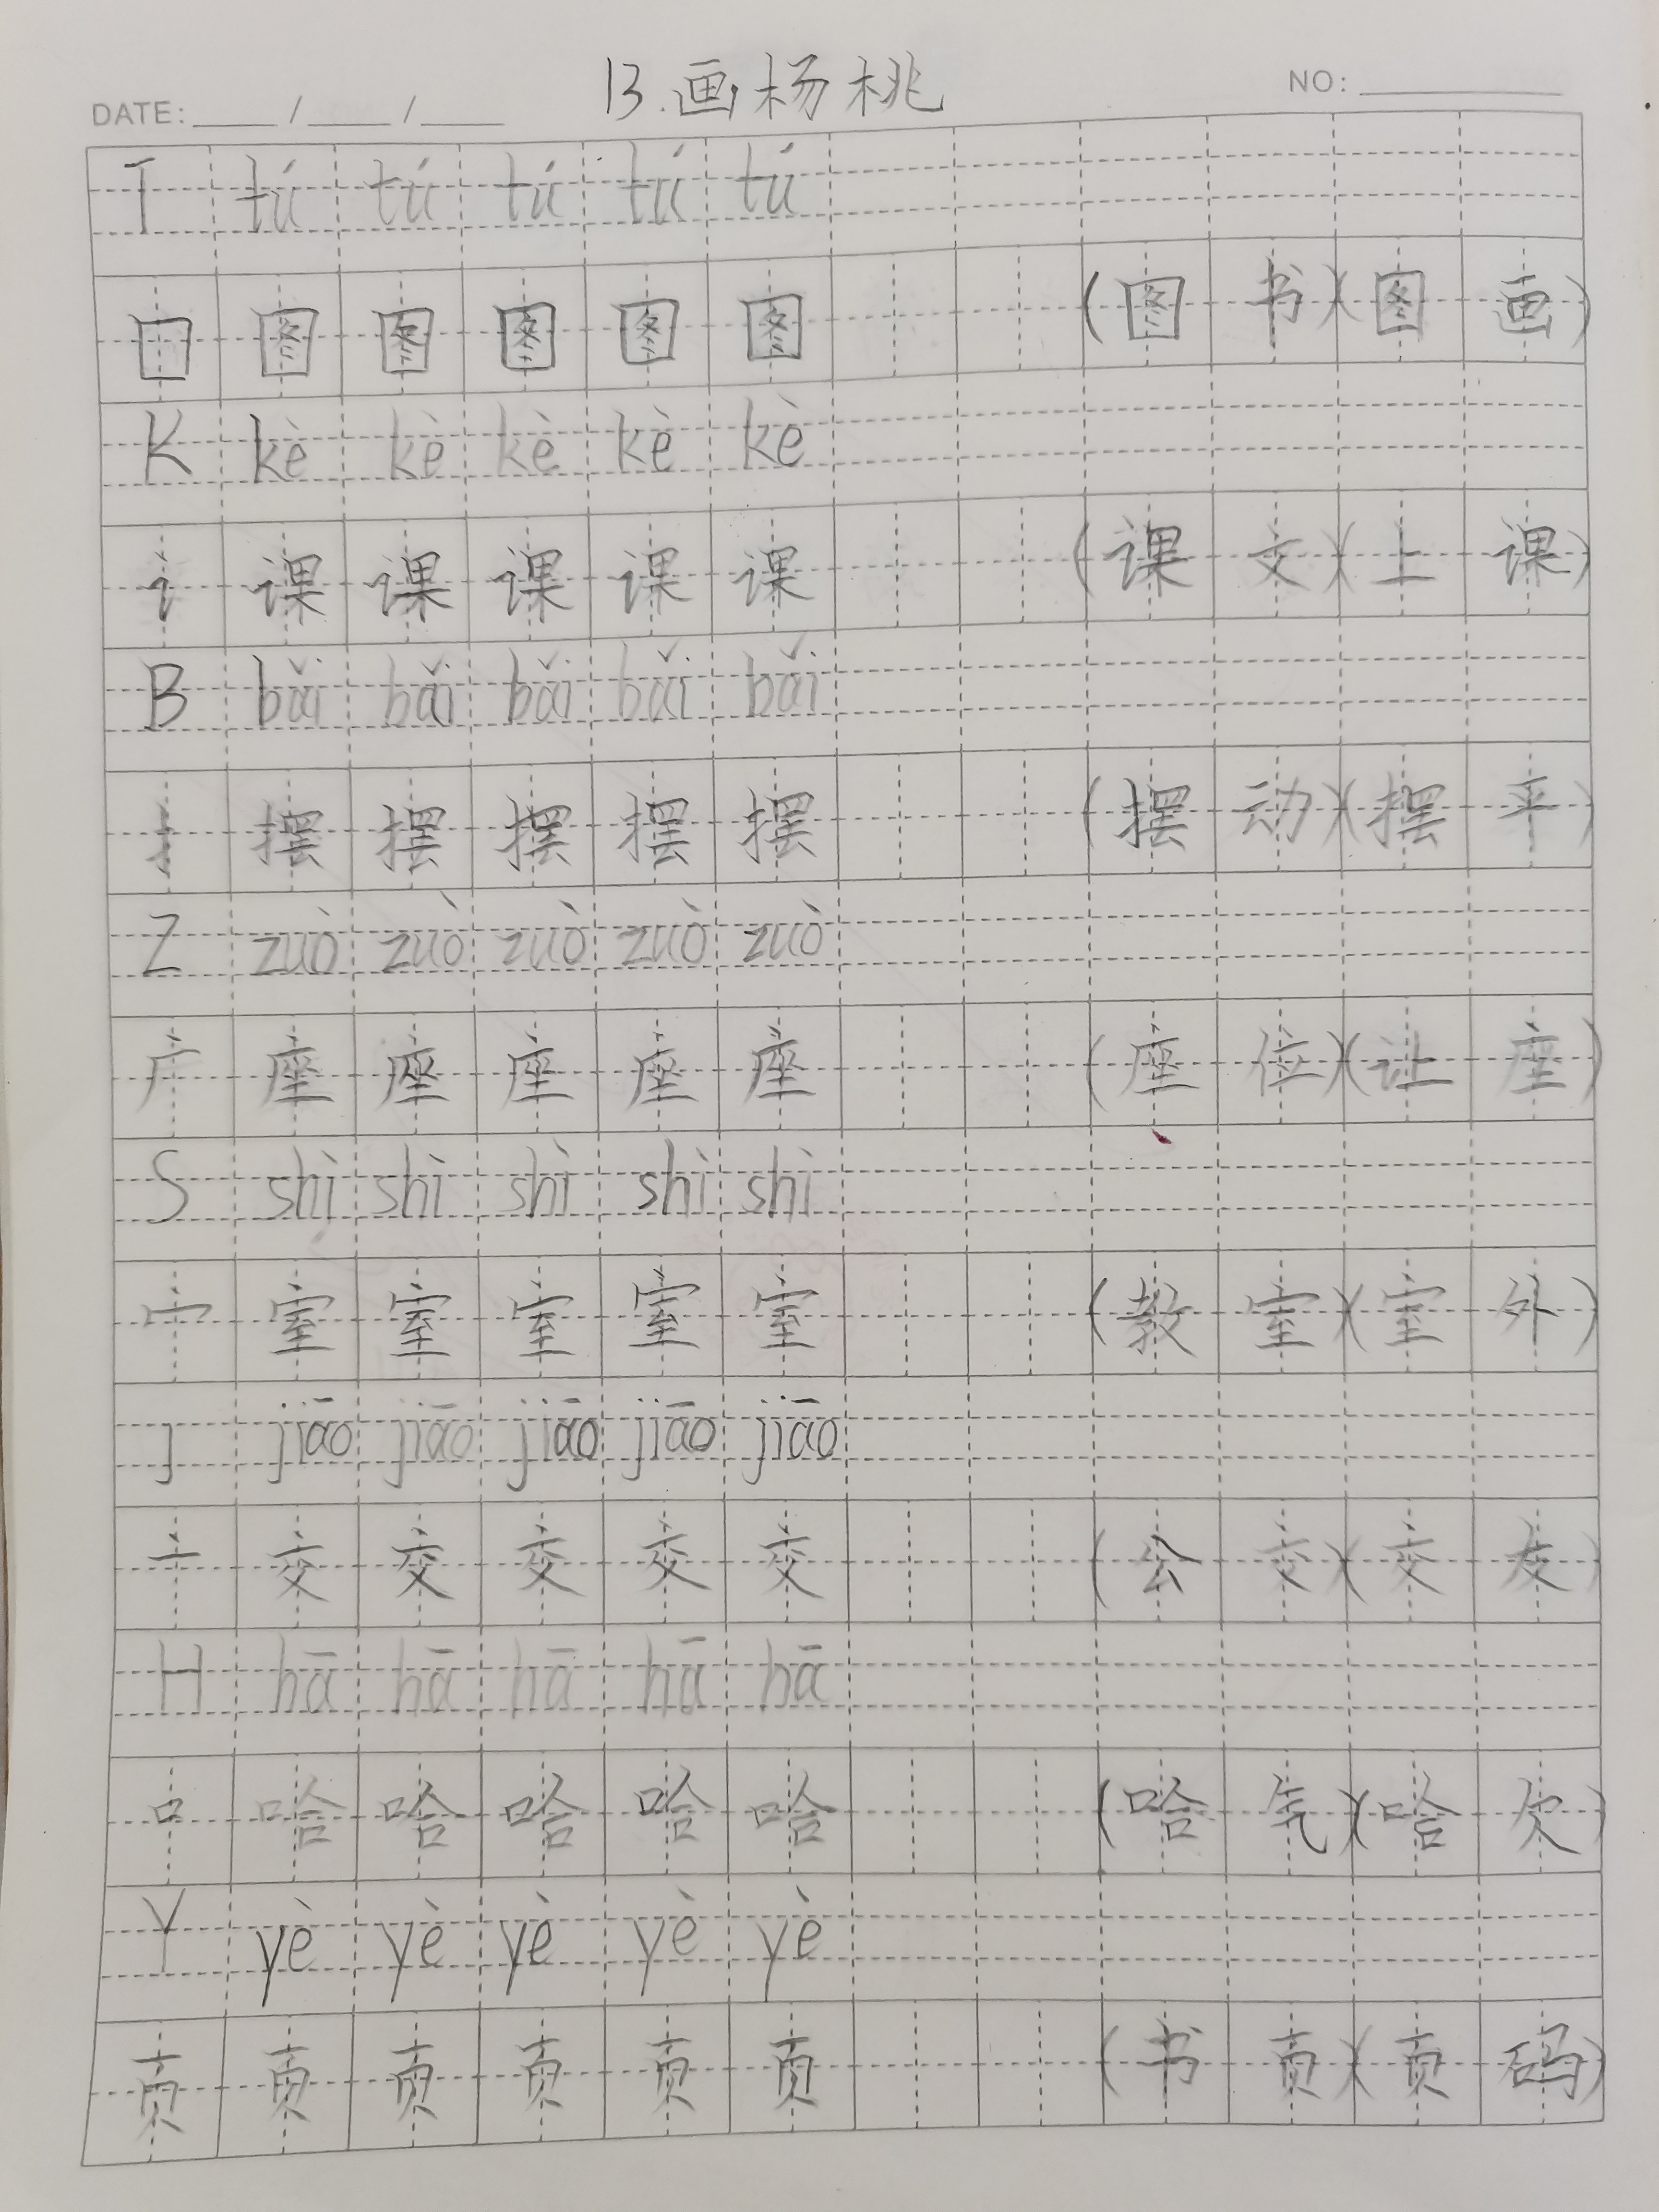 13.画杨桃
DATE: / /
NO:
T tú tú tú tú tú
囗 图 图 图 图 图 (图书)(图画)
K kè kè kè kè kè
讠 课 课 课 课 课 (课文)(上课)
B bǎi bǎi bǎi bǎi bǎi
扌 摆 摆 摆 摆 摆 (摆动)(摆平)
Z zuò zuò zuò zuò zuò
广 座 座 座 座 座 (座位)(让座)
S shì shì shì shì shì
宀 室 室 室 室 室 (教室)(室外)
J jiāo jiāo jiāo jiāo jiāo
亠 交 交 交 交 交 (公交)(交友)
H hā hā hā hā hā
口 哈 哈 哈 哈 哈 (哈气)(哈欠)
Y yè yè yè yè yè
页 页 页 页 页 页 (书页)(页码)